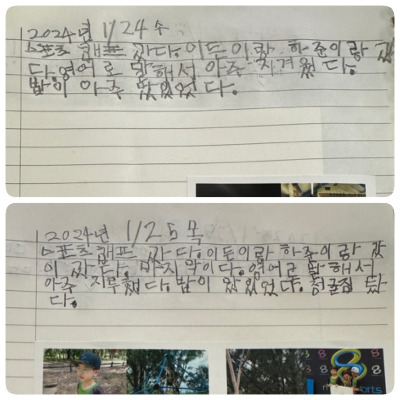 2024년 1/24 수
스포츠 캠프 갔다. 이든이랑 하준이랑 갔
다. 영어로 말해서 아주 지겨웠다.
밥이 아주 맛있었다.
2024년 1/25 목
스포츠 캠프 갔다. 이든이랑 하준이랑 같
이 갔다. 마지막이다. 영어로 말해서
아주 지루했다. 밥이 맛있었다. 정글짐 탔
다.
8
8
8
orts